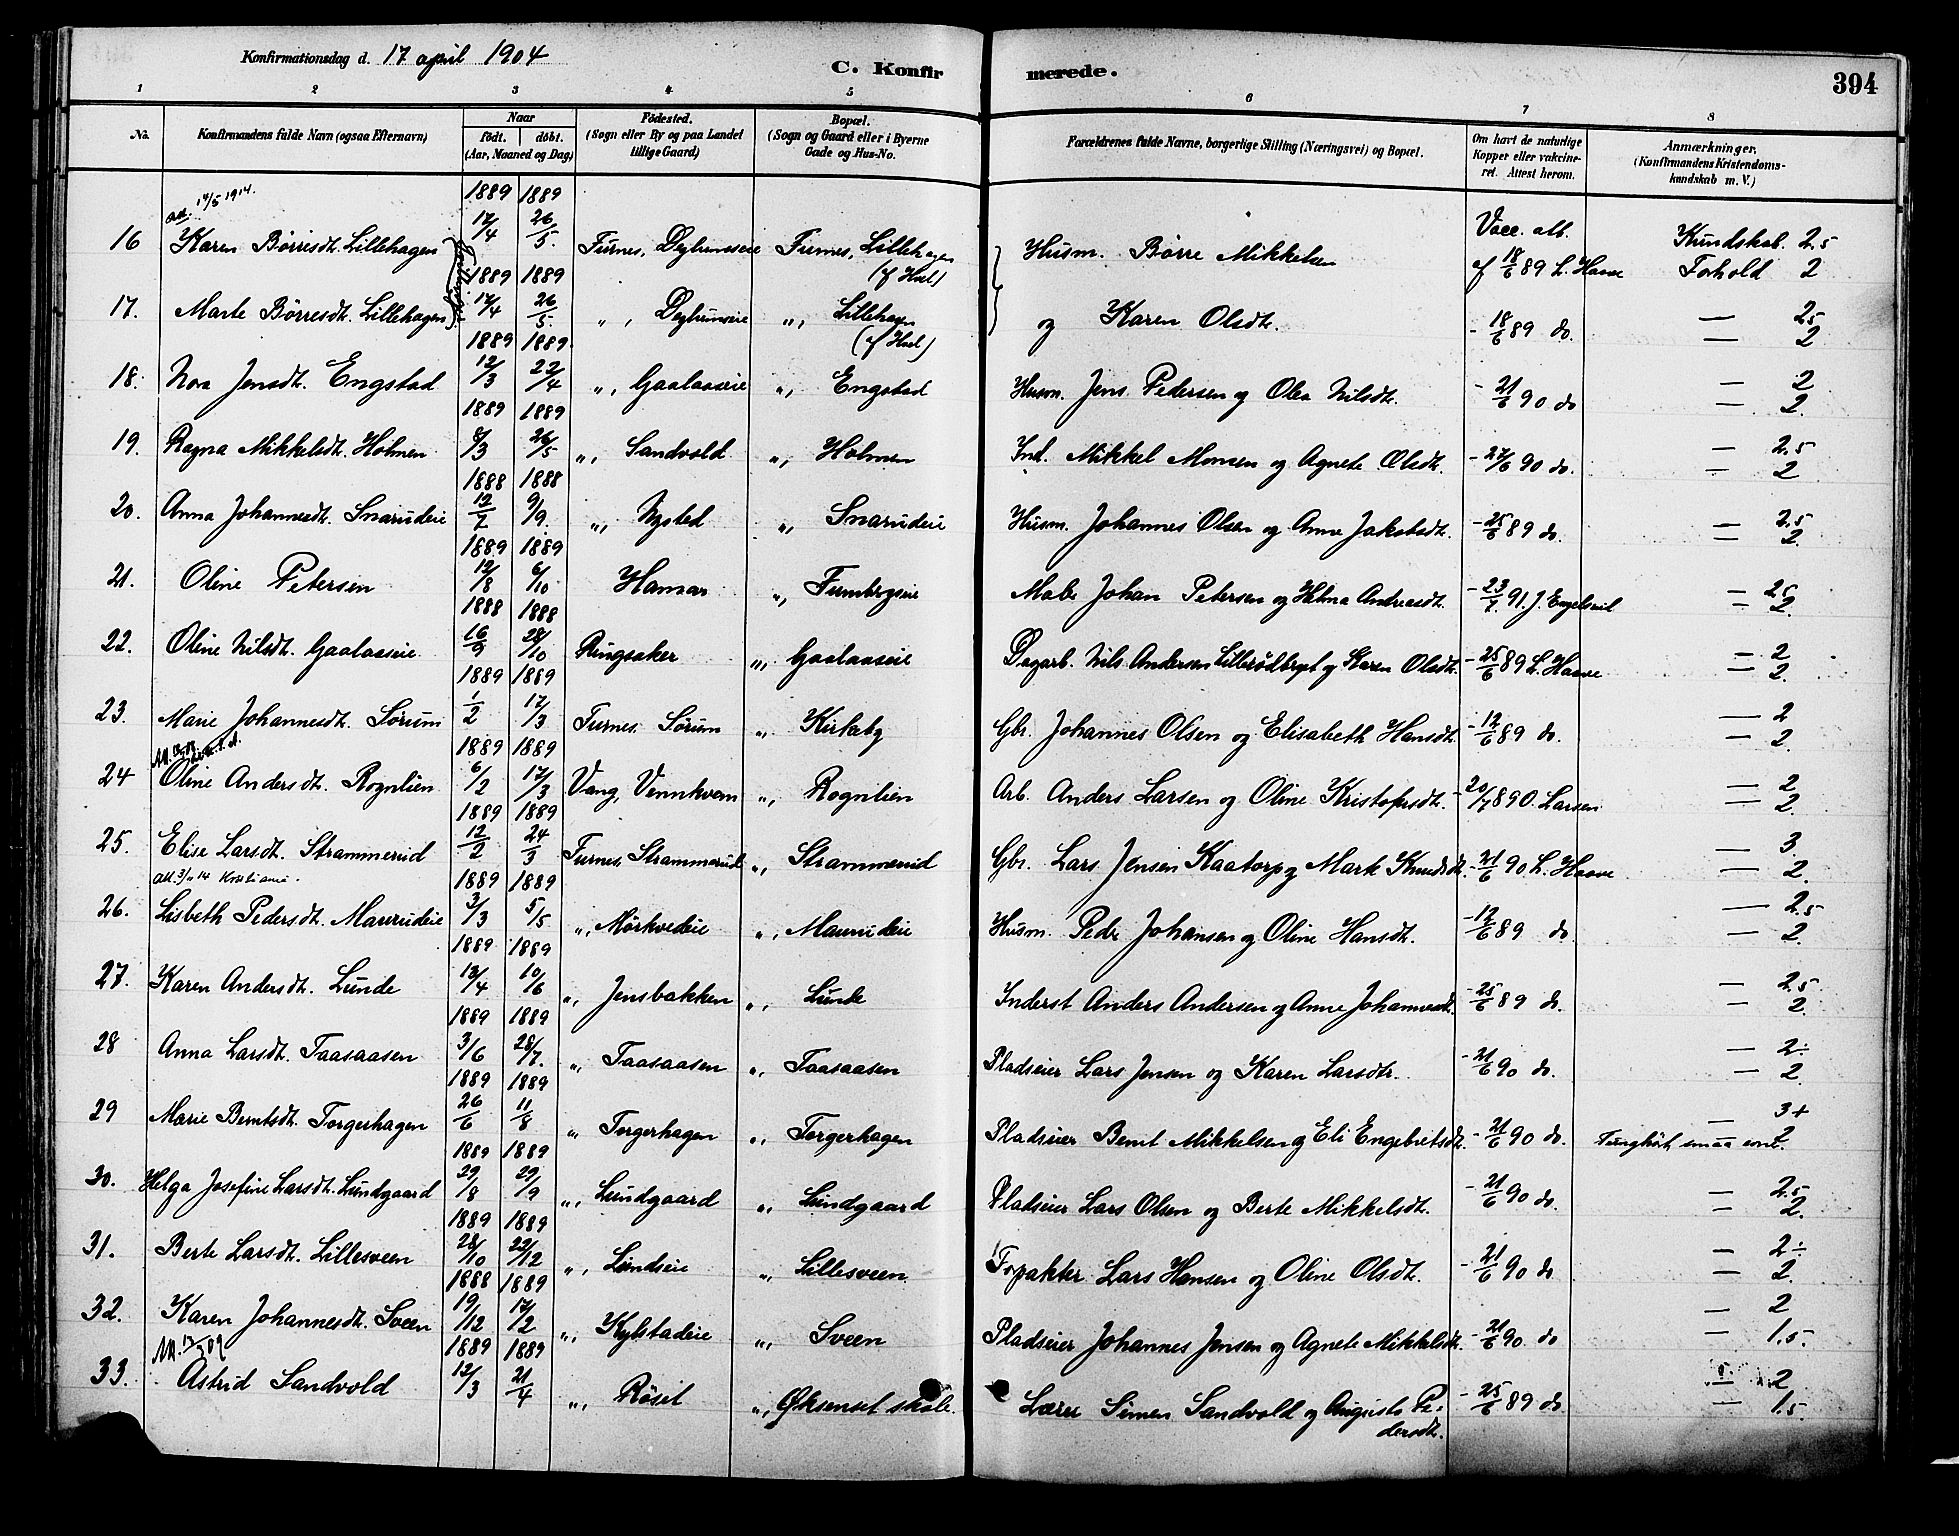 Konfirmationsdag d. 17 april 1904
C. Konfirmerede.
394
1 2 3 4 5 6 7 8
No. Konfirmandens fulde Navn (ogsaa Efternavn) Naar født. døbt. (Aar, Maaned og Dag) Fødested. (Sogn eller By og paa Landet tillige Gaard) Bopæl. (Sogn og Gaard eller i Byerne Gade og Hus-No. Forældrenes fulde Navne, borgerlige Stilling (Næringsvei) og Bopæl. Om havt de naturlige Kopper eller vakcineret. Attest herom. Anmærkninger. (Konfirmandens Kristendomskundskab m. V.)
att. 14/5 1914.
16 Karen Børresdt. Lillehagen 1889 17/4 1889 26/5 Furnes, Deglumseie Furnes, Lillehagen Husm. Børre Mikkelsen Vacc. att. af 18/6 89 L. Haave Kundskab. 2.5 Forhold 2
17. Marte Børresdt. Lillehagen 1889 17/4 1889 26/5. „, Deglumseie „, Lillehagen og Karen Olsdt. - 18/6 89 do — 2.5 — 2
18. Nora Jensdt. Engstad 1889 12/3 1889 22/4 „, Gaalaaseie „, Engstad Husm. Jens Pedersen og Olea Nilsdt. - 21/6 90 do — 2 — 2
19. Ragna Mikkelsdt. Holmen 1889 8/3 1889 26/5 „, Sandvold „, Holmen Ind. Mikkel Monsen og Agnete Olsdt. - 27/6 90 do. — 2.5 — 2
20. Anna Johannesdt. Snarudeie 1888 12/7 1888 9/9. „, Nysted „, Snarudeie Husm. Johannes Olsen og Anne Jakobsdt. - 25/6 89 do. — 2.5 — 2.
21. Oline Petersen 1889 12/8 1889 6/10 Hamar „, Furubergseie Johan Petersen og Helma Andreasdt. - 23/7. 91. J. Engelsvel — 25 — 2.
22. Oline Nilsdt. Gaalaaseie 1888 16/9 1888 28/10 Ringsaker „, Gaalaaseie Dagarb. Nils Andersen Lillerødbryet og Karen Olsdt. - 25/6 89 L. Haave — 2 — 2.
23. Marie Johannesdt. Sørum 1889 1/2 1889 17/3 Furnes. Sørum „, Kirkeby Gbr. Johannes Olsen og Elisabeth Hansdt. - 12/6 89 do. — 2 — 2.
24 Oline Andersdt. Rognlien 1889 6/2 1889 17/3 Vang, Vennkvern „, Rognlien Arb. Anders Larsen og Oline Kristofersdt. - 20/7 890. Larsen — 2 — 2.
25. Elise Larsdt. Strammerud 1889 12/2 1889 24/3 Furnes, Strammerud „, Strammerud Gbr. Lars Jensen Kaatorp og Mark Knudsdt. - 21/6 90 L. Haave — 3. — 2.
26. Lisbeth Pedersdt. Maurudeie 1889 3/3 1889 5/5 „, Mørkvedeie „, Maurudeie Husm. Peder Johansen og Oline Hansdt. - 12/6 89 do. — 2.5 — 2.
27. Karen Andersdt. Lunde 1889 13/4 1889 10/6 „, Jensbakken „, Lunde Inderst Anders Andersen og Anne Johannesdt. - 25/6 89 do. — 2.5 — 2.
28 Anna Larsdt. Taasaasen 1889 3/6 1889 28/7. „, Taasaasen „, Taasaasen Pladseier Lars Jensen og Karen Larsdtr. - 21/6 90 do. — 2÷ — 2.
29 Marie Berntsdt. Torgerhagen 1889 26/6 1889 11/8 „, Torgerhagen „, Torgerhagen Pladseier Bernt Mikkelsen og Eli Engebretsdt. - 21/6 90 do. Tunghørt, smaa evn. — 3+ — 2
30. Helga Josefine Larsdt. Lundgaard 1889 29/8 1889 29/9 „, Lundgaard „, Lundgaard Pladseier Lars Olsen og Berte Mikkelsdt. - 21/6 90 do. — 2.5 — 2.
31. Berte Larsdt. Lillesveen 1889 28/10 1889 22/12 „, Lundseie „, Lillesveen Forpakter Lars Hansen og Oline Olsdt. - 21/6 90 do — 2÷ — 2.
32. Karen Johannesdt. Sveen 1888 19/12 1889 17/2 „, Kylstadeie „, Sveen Pladseier Johannes Jensen og Agnete Mikkelsdt. - 21/6 90. do — 2 — 1.5
33. Astrid Sandvold 1889 12/3 1889 21/4 „, Røsit „, Øksenset skole. Lærer Simen Sandvold og Augusta Pedersdt. - 25/6 89 do — 2 — 1.5.